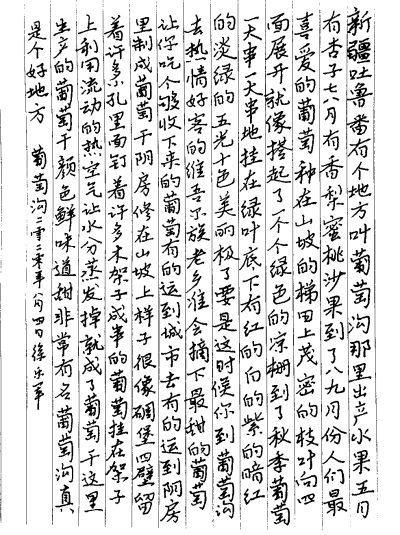 新疆吐鲁番有个地方叫葡萄沟那里出产水果五月
有杏子七八月有香梨蜜桃沙果到了八九月份人们最
喜爱的葡萄种在山坡的梯田上茂密的枝叶向四
面展开就像搭起了一个个绿色的凉棚到了秋季葡萄
一大串一大串地挂在绿叶底下有红的白的紫的暗红
的淡绿的五光十色美丽极了要是这时候你到葡萄沟
去热情好客的维吾尔族老乡准会摘下最甜的葡萄
让你吃个够收下来的葡萄有的运到城市去有的运到阴房
里制成葡萄干阴房修在山坡上样子很像碉堡四壁留
着许多孔里面钉着许多木架子成串的葡萄挂在架子
上利用流动的热空气让水分蒸发掉就成了葡萄干这里
生产的葡萄干颜色鲜味道甜非常有名葡萄沟真
是个好地方 葡萄沟二零二零年八月四日徐乐军